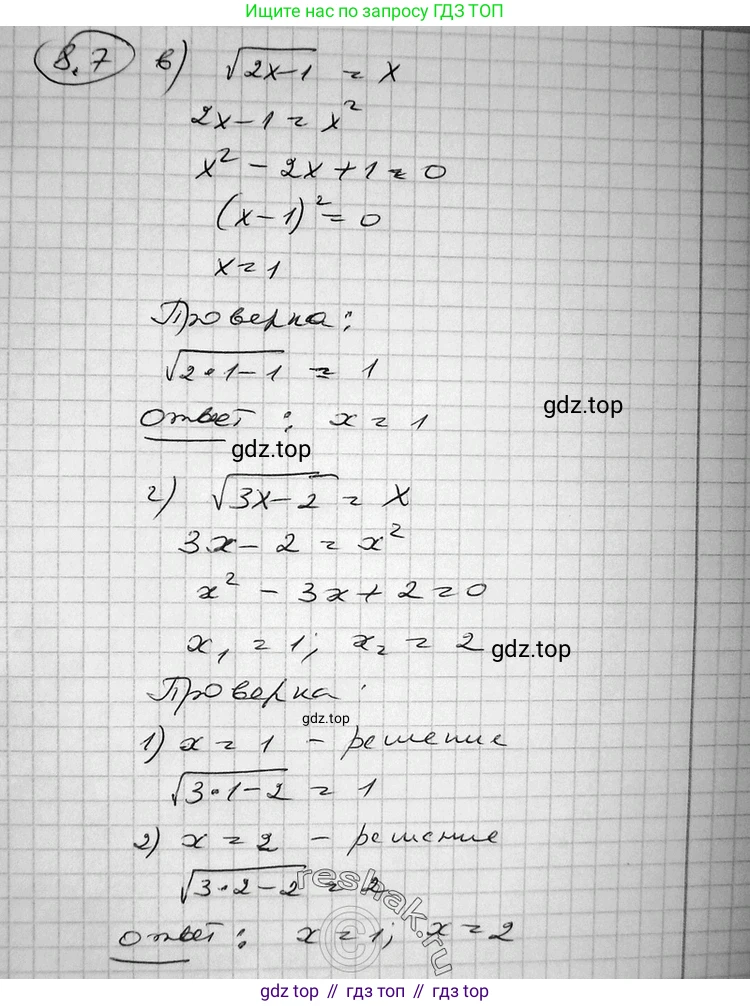 Ищите нас по запросу ГДЗ ТОП
8.7 в) √2x-1 = x
2x-1 = x²
x² - 2x + 1 = 0
(x-1)² = 0
x = 1
Проверка:
√2·1-1 = 1
Ответ: x = 1
gdz.top
gdz.top
г) √3x-2 = x
3x - 2 = x²
x² - 3x + 2 = 0
x₁ = 1; x₂ = 2
gdz.top
Проверка:
gdz.top
1) x = 1 - решение
√3·1-2 = 1
2) x = 2 - решение
√3·2-2 = 2
reshak.ru
Ответ: x = 1; x = 2
gdz top // гдз топ // gdz.top